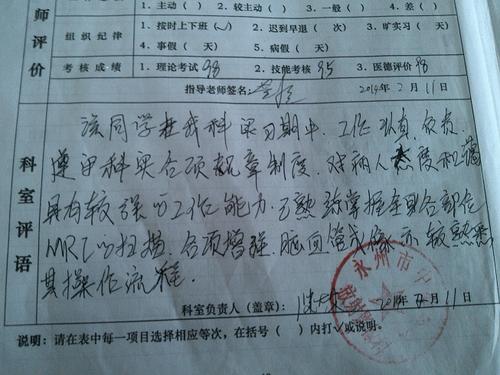 1. 主动（ ） 2. 较主动（ ） 3. 一般（ ） 4. 差（ ）
师评价
组织纪律
1. 按时上下班（✓） 2. 迟到早退（ 次） 3. 旷实习（ 天）
4. 事假（ 天） 5. 病假（ 天）
考核成绩 1. 理论考试 98 2. 技能考核 95 3. 医德评价 98
指导老师签名： 2014年 2月 11日
科室评语
该同学在我科实习期中，工作认真，负责，
遵守科室各项规章制度，对病人态度和蔼
具有较强的工作能力，已熟练掌握全身各部位
MRI的扫描，各项增强，脑血管成像亦较熟悉
其操作流程。
科室负责人（盖章）： 2014年 2月 11日
永州市中
说明：请在表中每一项目选择相应等次，在括号（ ）内打√或说明。